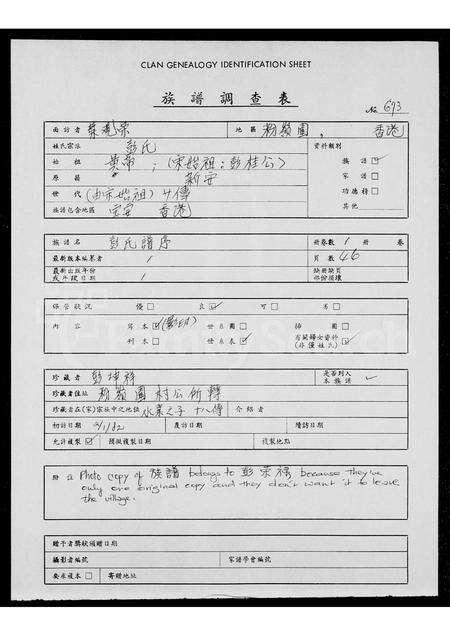 CLAN GENEALOGY IDENTIFICATION SHEET
族譜調查表
No. 693
面訪者 地區 粉嶺圍, 香港
姓氏宗派 彭氏 資料類別
始祖 黃帝; (宋始祖:彭桂公) 族譜 ✓
原籍 新安 家譜
世代 (由宋始祖) 功德榜
族譜包含地區 宝安 香港 其他
族譜名 彭氏譜序 冊卷數 1 冊 卷
最新版本編纂者 1 頁數 46
最新出版年份或年代日期 1 缺冊缺頁部份損壞
保管狀況 優 良 ✓ 可 劣
內容 寫本 ✓ (影印) 世系圖 插圖
刊本 世系表 ✓ 有關婦女資料 (非僅姓氏) ✓
珍藏者 彭坤祥 是否列入本族譜 ✓
珍藏者住址 粉嶺圍村公所轉
珍藏者在(宋)宗族中之地位 十八傳 介紹者
初訪日期 覆訪日期 續訪日期
允許複製 ✓ 預擬複製日期 複製地點
附註 Photo copy of 族譜 belongs to 彭 because they've
only one original copy and they don't want it to leave
the village.
贈予者獎狀頒贈日期
攝影者編號 家譜學會編號
要求複本 寄贈地址